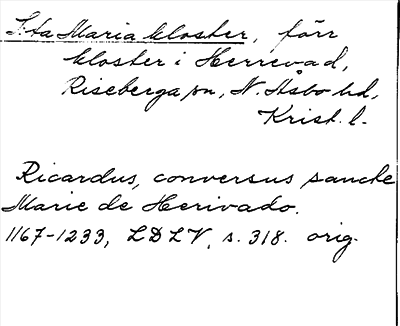 S:ta Maria kloster, förr
kloster i Herrevad,
Riseberga sn, N. Åsbo hd,
Krist. l.
Ricardus, conversus sancte
Marie de Herivado.
1167-1233, LDLV, s. 318. orig.